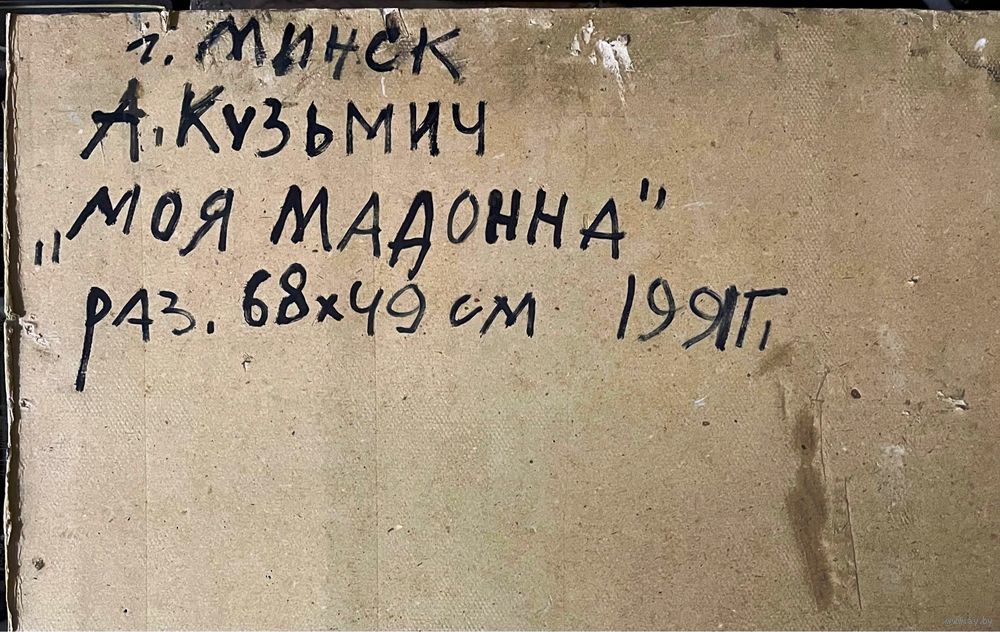 г. МИНСК
А. КУЗЬМИЧ
"МОЯ МАДОННА"
раз. 68х49 см 1991г.